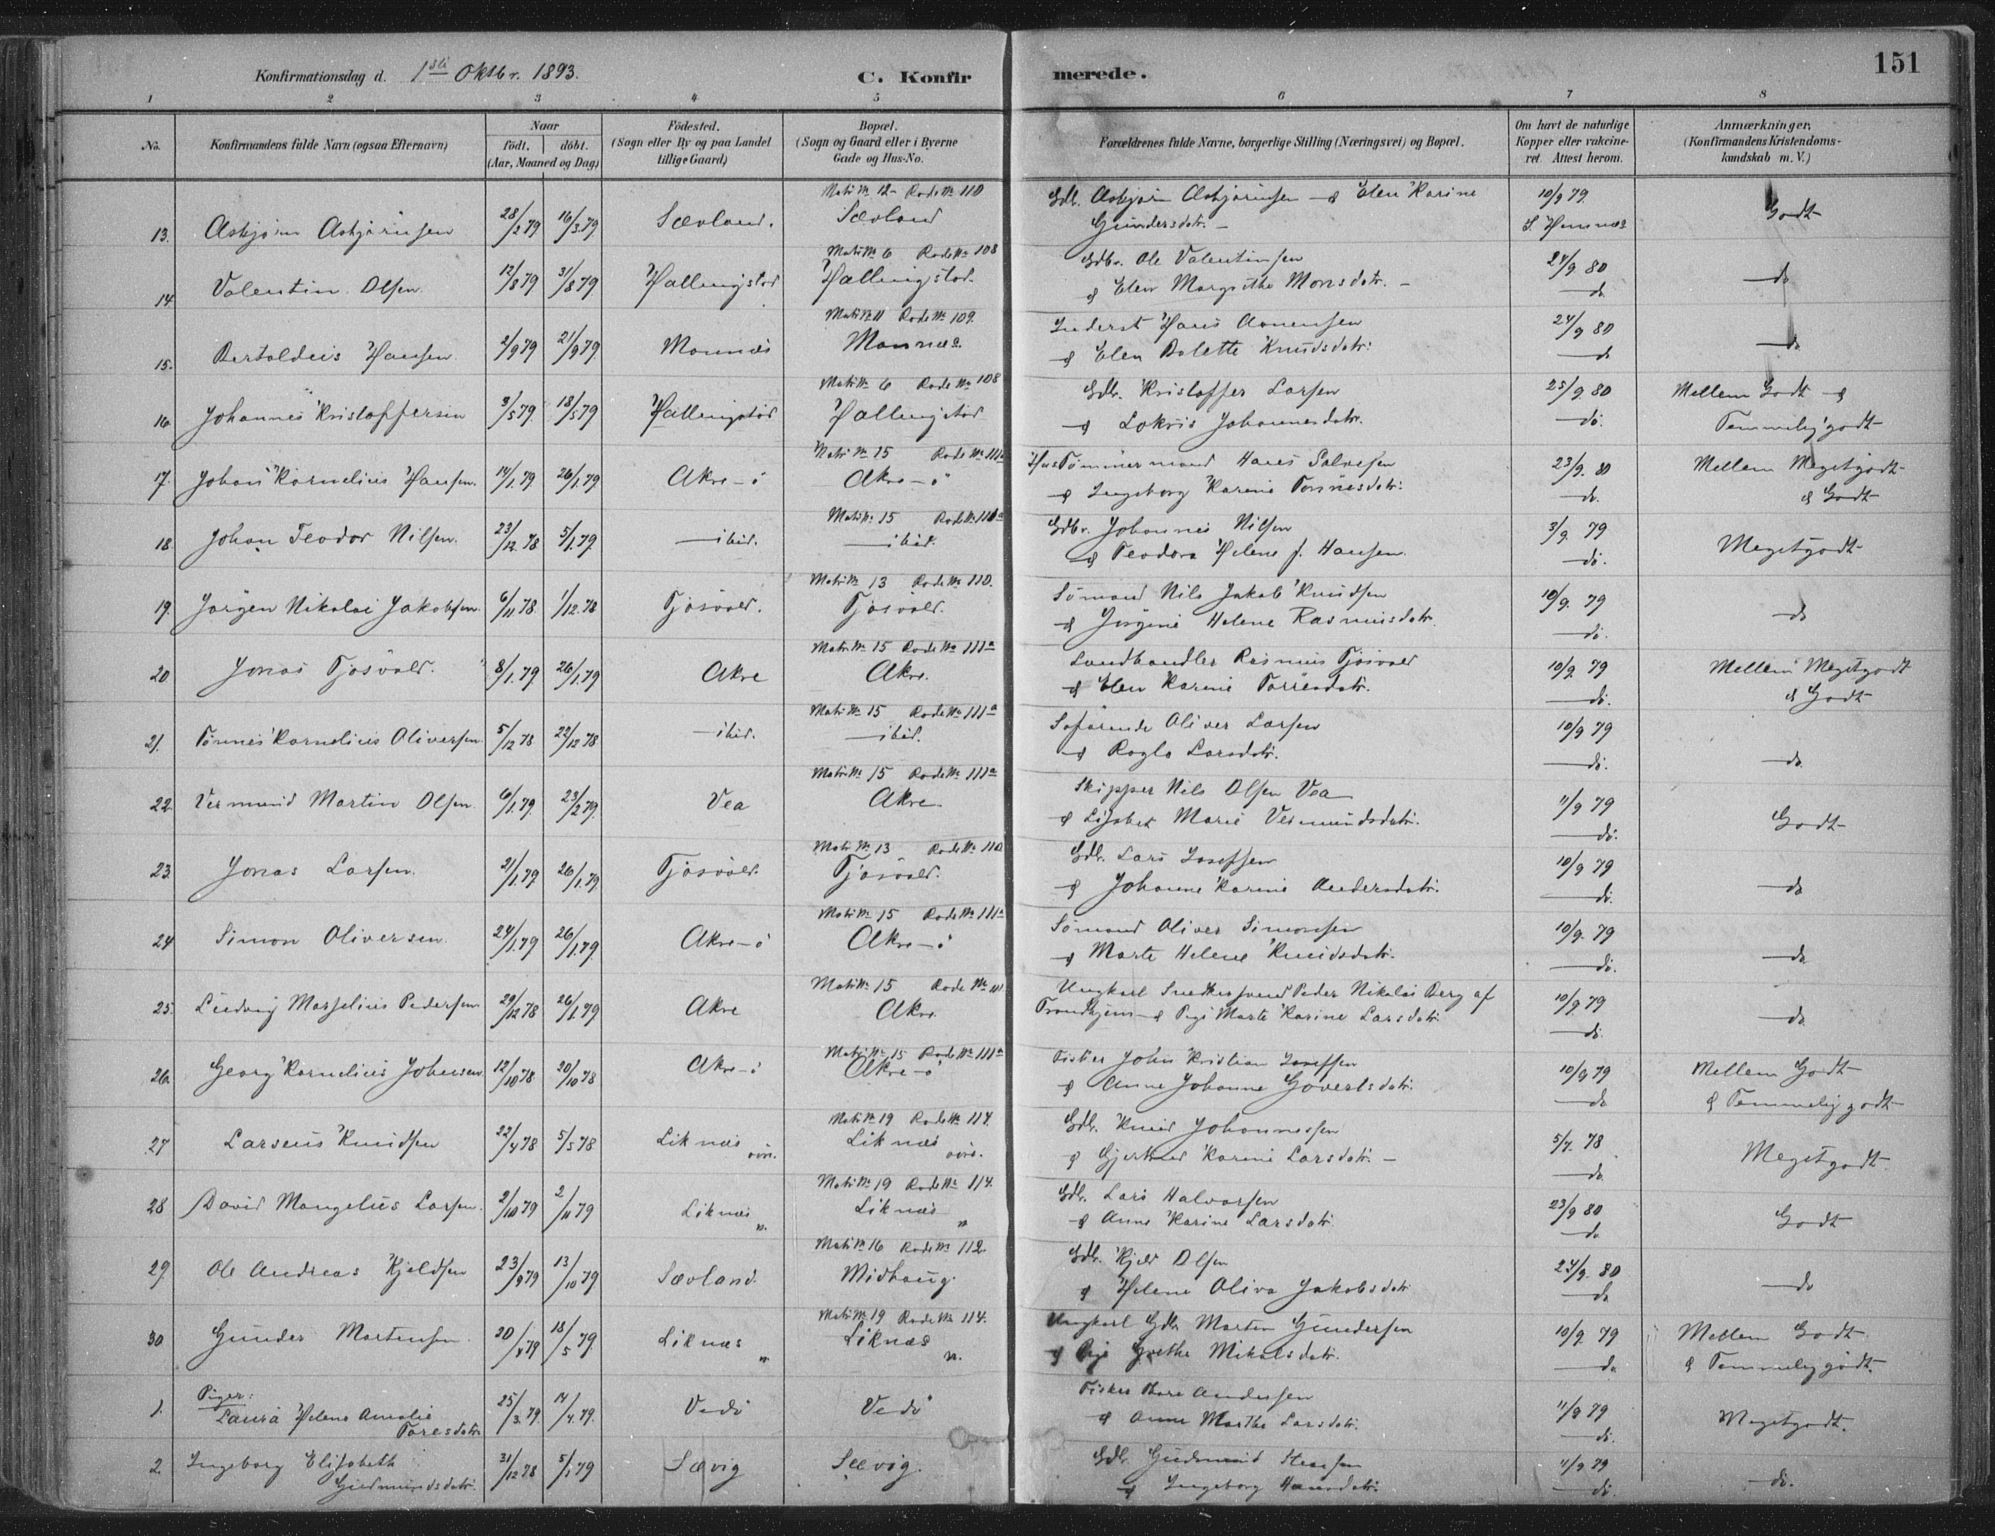 Konfirmationsdag d. 1ste Oktbr. 1893.
C. Konfirmerede.
151
1 2 3 4 5 6 7 8
No.
Konfirmandens fulde Navn (ogsaa Efternavn)
Naar
födt. döbt.
(Aar, Maaned og Dag)
Födested.
(Sogn eller By og paa Landet
tillige Gaard)
Bopæl.
(Sogn og Gaard eller i Byerne
Gade og Hus-No.
Forældrenes fulde Navne, borgerlige Stilling (Næringsvei) og Bopæl.
Om havt de naturlige
Kopper eller vakcine-
ret. Attest herom.
Anmærkninger,
(Konfirmandens Kristendoms-
kundskab m. V.)
Matr No 12 - Rode No 110
13. Asbjørn Asbjørnsen 28/2 79 16/3 79 Sævland. Sævland Gdbr. Asbjørn Asbjørnsen & Elen Karine
Gundersdatr. - 10/9 79. S. Hemnæs Godt
Matr No 6 Rode No 108
14 Valentin Olsen 12/8 79 31/8 79 Hallingstad Hallingstad. Gdbr. Ole Valentinsen
& Elen Margrethe Monsdatr. - 24/9 80 do. do
Matr No 11 Rode No 109.
15. Bertoldus Hansen 2/9 79 21/9 79 Munnæs Munnæs. Inderst Hans Aanensen
& Elen Bolette Knudsdatr. 24/9 80 do do
Matr No 6 Rode No 108
16 Johannes Kristoffersen 3/5 79 18/5 79 Hallingstad Hallingstad Gdbr. Kristoffer Larsen
& Lokris Johannesdatr. 25/9 80 do. Mellem Godt &
Temmelig godt
Matr No 15 Rode No 111a
17. Johan Kornelius Hansen. 14/1 79 26/1 79 Akre-ø Akre-ø Hus Tømmermand Hans Salvesen
& Ingeborg Karine Tønnesdatr. 23/9. 80 do. Mellem Megetgodt
& Godt
Matr No 15 Rode No 111a
18. Johan Teodor Nilsen. 23/12 78 5/1 79 ibid. ibid. Gdbr. Johannes Nilsen
& Teodora Helene f. Hansen. 3/9. 79 do. Megetgodt
Matr No 13 Rode No 110.
19. Jørgen Nikolai Jakobsen 6/11 78 1/12 78 Tjøsvold. Tjøsvold. Sømand Nils Jakob Knudsen
& Jørgine Helene Rasmusdatr. 10/9. 79 do. do
Matr No 15 Rode No 111a
20 Jonas Tjøsvold. 8/1 79 26/1 79 Akre Akre. Landhandler Rasmus Tjøsvold
& Elen Karine Torresdatr. 10/9 79 do. Mellem Megetgodt
& Godt
Matr No 15 Rode No 111a
21. Tønnes Kornelius Oliversen 5/12 78 22/12 78 ibid. ibid. Søfarende Oliver Larsen
& Ragla Larsdatr. 10/9 79 do. do
Matr No 15 Rode No 111a
22. Vermund Martin Olsen. 6/1 79. 23/2 79. Vea Akre. Skipper Nils Olsen Vea
& Lisabet Marie Vermundsdatr. 11/9 79 do. Godt
Matr No 13 Rode No 110
23. Jonas Larsen. 2/1 79 26/1 79 Tjøsvold Tjøsvold. Gdbr. Lars Josefsen
& Johanne Karine Andersdatr. 10/9 79 do. do
Matr No 15 Rode No 111a
24 Simon Oliversen. 24/1 79 26/1 79 Akre-ø Akre-ø Sømand Oliver Simonsen
& Marte Helene Knudsdatr. 10/9. 79 do. do
Matr No 15 Rode No 111
25. Ludvig Marselius Pedersen 29/12 78 26/1 79 Akre Akre Ungkarl Snedkersvend Peder Nikolai Berg af
Trondhjem & Pige Marte Karine Larsdatr. 10/9 79 do. do
Matr No 15 Rode No 111a
26. Georg Kornelius Johnsen 12/10 78 20/10 78 Akre-ø Akre-ø Fisker John Kristian Josefsen
& Anne Johanne Govertsdatr. 10/9 79 do Mellem Godt
& Temmelig godt
Matr No 19 Rode No 114.
27 Larseus Knudsen 22/4 78 5/5 78 Liknæs øvr. Liknæs øvr. Gdbr. Knud Johannessen
& Gjertrud Karine Larsdatr. - 5/7. 78 do. Megetgodt.
Matr No 19 Rode No 114.
28 David Mangelus Larsen. 2/10 79 2/11 79 Liknæs n. Liknæs n Gdbr. Lars Halvorsen
& Anne Karine Larsdatr. 23/9 80 do Godt
Matr No 16 Rode No 112.
29. Ole Andreas Kjeldsen 23/9 79 13/10 79 Sævland. Midhaug. Gdbr. Kjeld Olsen
& Helene Oliva Jakobsdatr 24/9. 80 do do
Matr No 19 Rode No 114.
30 Gunder Martensen. 20/4 79 18/5 79 Liknæs n Liknæs n. Ungkarl Gdbr Morten Gundersen
& Pige Grethe Mikalsdatr. 10/9 79 do Mellem Godt
& Temmelig godt.
Piger:
1. Laura Helene Amalie
Toresdatr 25/3. 79 14/4. 79. Vedø Vedø Fisker Thore Andersen
& Anne Marthe Larsdatr. 11/9 79 do. Megetgodt.
2. Ingeborg Elisabeth
Gudmundsdatr. 31/12 78 5/1 79 Sævig Sævig. Gdbr. Gudmund Steensen
& Ingeborg Hansdatr. 11/9 79 do. do.